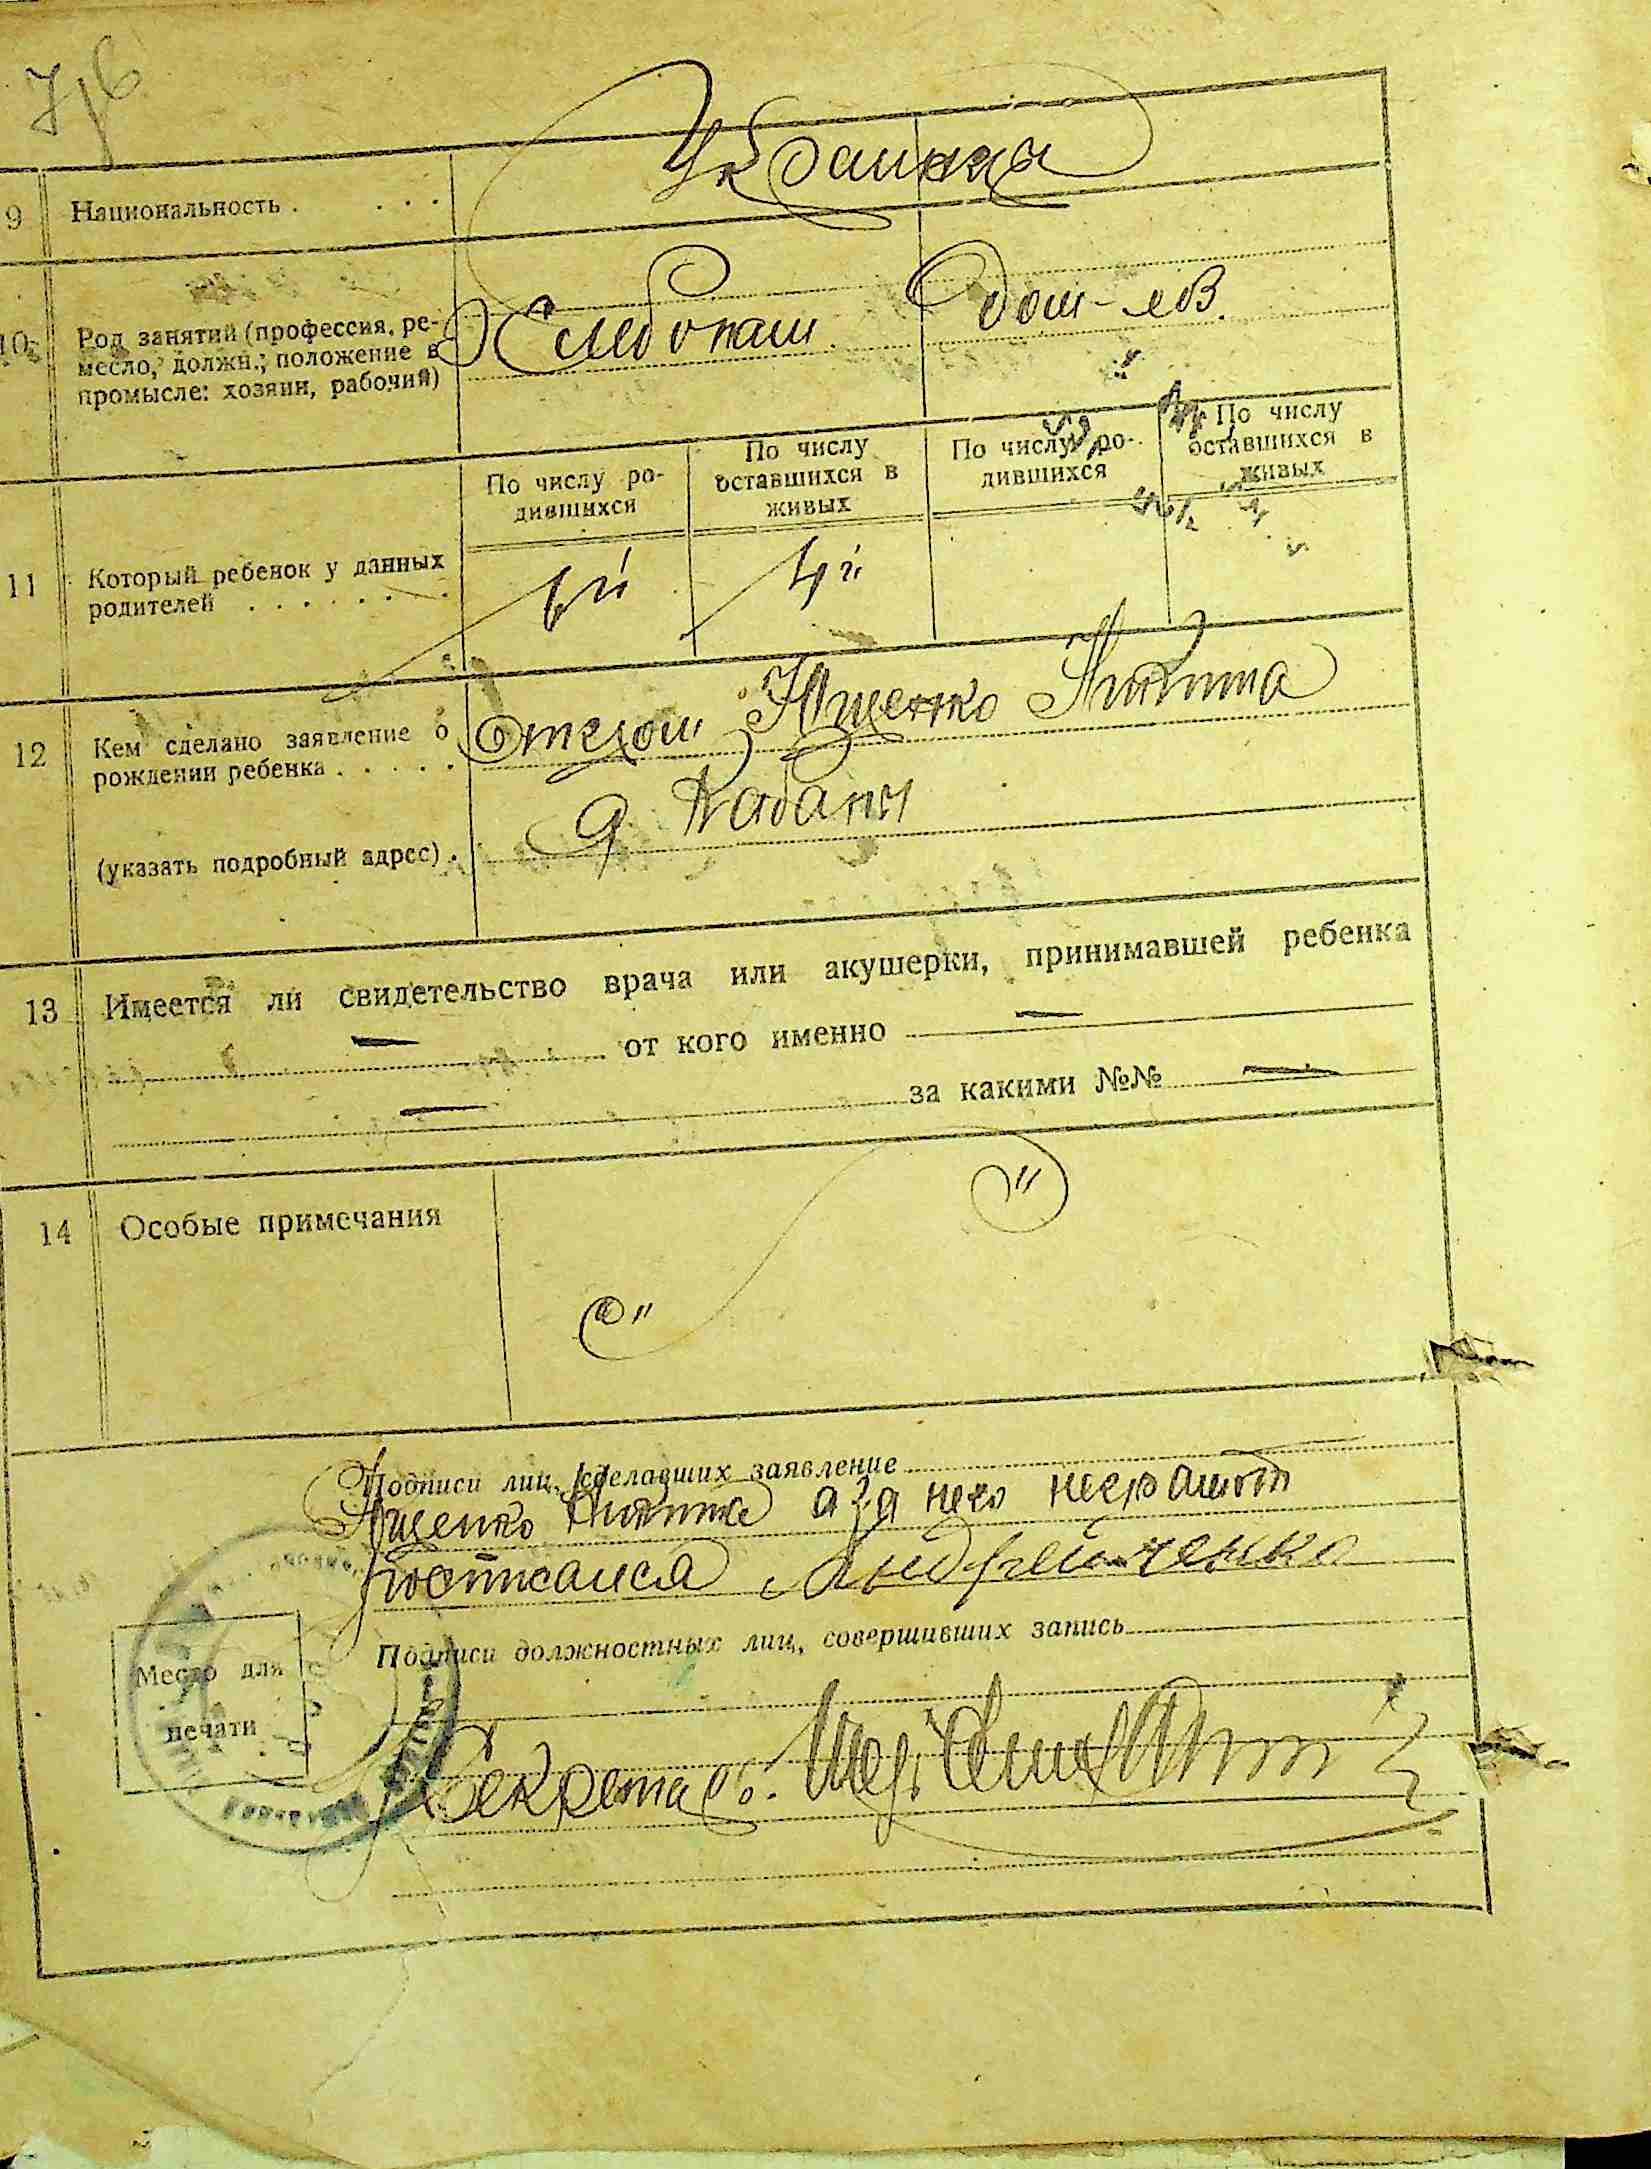 9 Национальность . . . . Украинцы
10 Род занятий (профессия, ре-
месло, должн.; положение в
промысле: хозяин, рабочий)
Хлебопаш. дом-хоз.
11 Который ребенок у данных
родителей . . . . . . .
По числу ро-
дившихся
По числу
оставшихся в
живых
По числу ро-
дившихся
По числу
оставшихся в
живых
6й 4й
12 Кем сделано заявление о
рождении ребенка . . . . .
Отцом Ющенко Никита
(указать подробный адрес) .
д Кабаны
13 Имеется ли свидетельство врача или акушерки, принимавшей ребенка
— от кого именно —
— за какими №№ —
14 Особые примечания
Подписи лиц, сделавших заявление
Ющенко Никита а за него неграмот
росписался Андрейченко
Подписи должностных лиц, совершивших запись
Место для
печати
Секретарь.